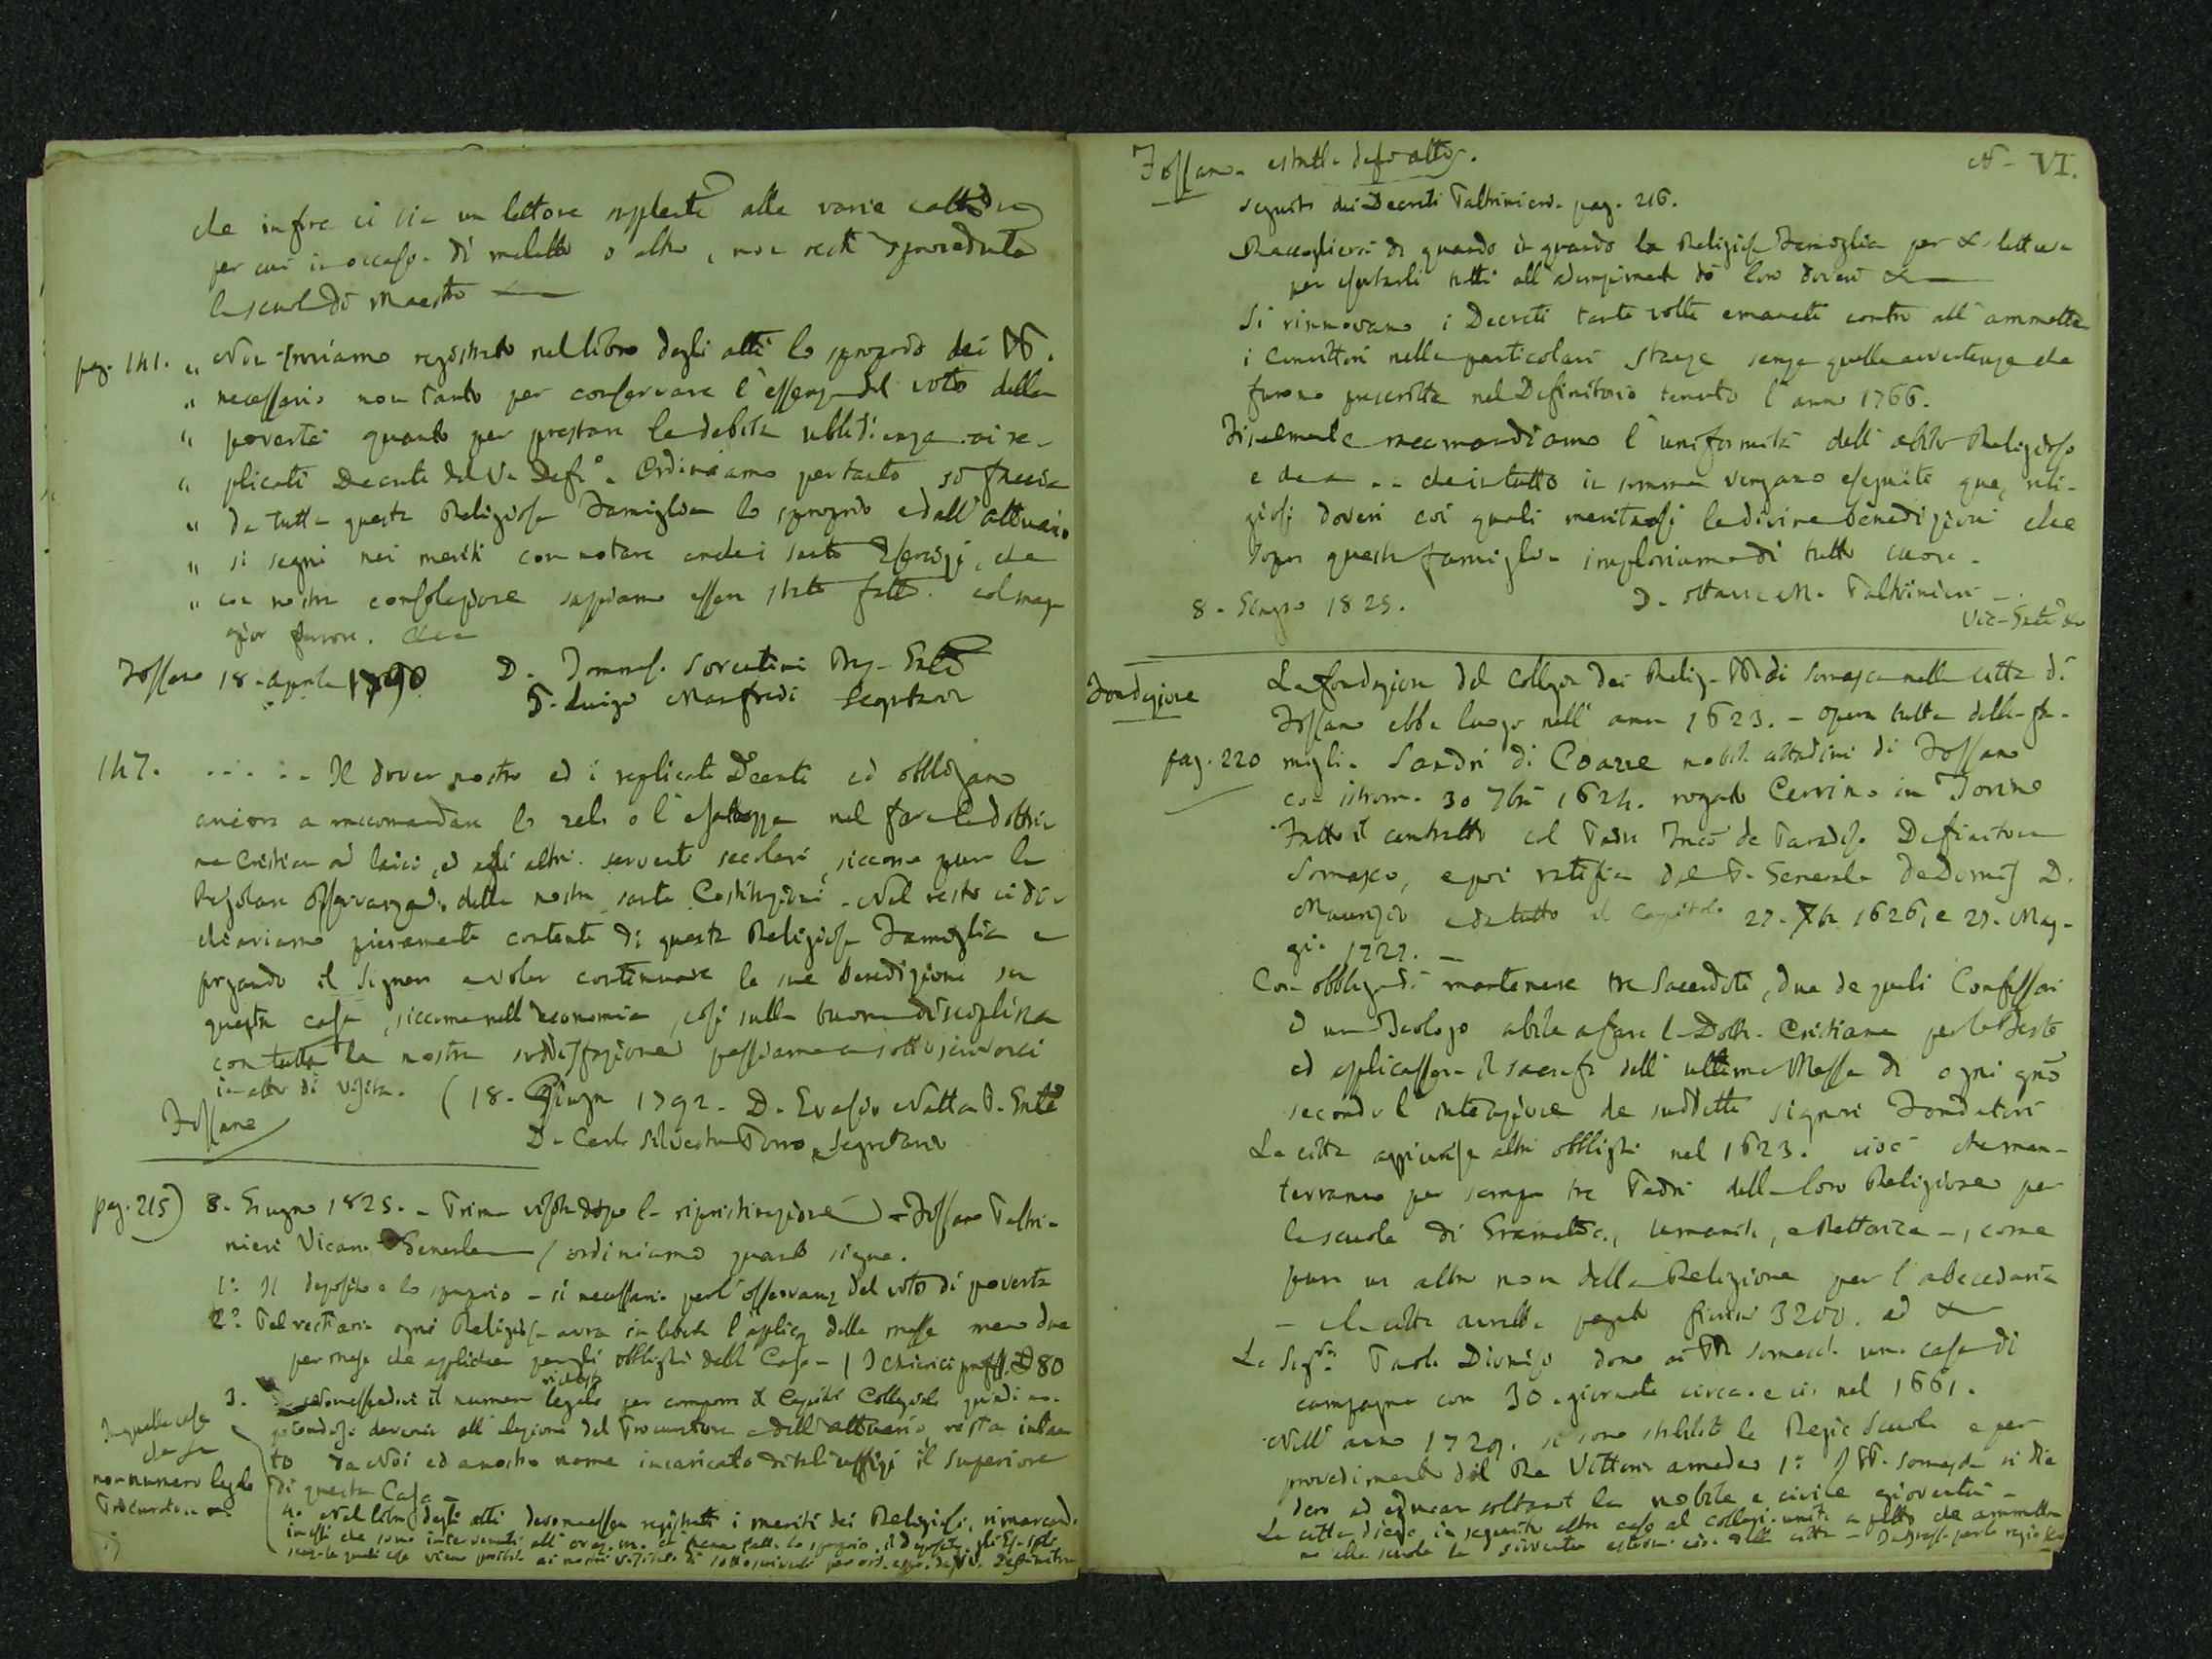 che in fore ci sia un lettore supplente alle varie cattedre
per cui in occaso. di malatti o altro, non resti sproveduta
la scuol di Maestro
pag. 141. „ Non troviamo registrato nel libro degli atti lo sproprio dei PP.
„ necessario non tanto per conservare l'essenza del voto della
„ povertà quanto per prestare la debita ubbidienza ai re-
„ plicati Decreti del V. Defi.o Ordiniamo pertanto si faccia
„ da tutta questa Religiosa Famiglia lo sproprio ed all' attuario
„ si segni nei meriti con notare anche i santi Esercizi, che
„ con nostra consolazione sappiamo essere stati fatti. col mag-
gior fervore.
Fossano 18. Aprile 1790. D. Sorentini Prep. Gnle
D. Luigi Manfredi Segretario
147. ..... Il dover nostro ed i replicati Decreti ci obbligano
ancora a raccomandare lo zelo e l' esatezza nel fare la dottri-
na Cristiana ai laici, ed agli altri serventi secolari, siccome pure la
Regolare Osservanza delle nostre sante Costituzioni. Nel resto ci di-
chiariamo pienamente contenti di questa Religiosa Famiglia e
pregando il Signore a voler continuare le sue benedizioni su
questa casa, siccome nell' economia, così sulla buona disciplina
con tutta la nostra soddisfazione passiamo a sottoscriverci
in atto di visita. (18. Giugno 1792. D. Evasio Natta P. Gnle
Fossano D. Carlo Silvestro Porro Segretario
pag. 215) 8. Giugno 1825. - Prima visita dopo la ripristinazione) - Fossano Paltri-
nieri Vicario Generale / ordiniamo quanto segue.
1.o Il deposito e lo sproprio - si necessario per l' osservanz del voto di povertà
2.o Pel vestiario ogni Religioso avra in libertà l' applicaz delle messe meno due
per mese che applicherà per gli obblighi della Casa - ( I chierici prof. 80
3. Non essendovi il numero legale richiesto per comporre il Capitolo Collegiale quindi no-
potendosi devenir all' elezione del Procuratore e dell' attuario, resta intan
to da Noi ed a nostro nome incaricato di tali uffizi il Superiore
di questa Casa -
In quella casa
che ha
non numero legale
Procuratore
4.o Nel libro degli atti devono essere registrati i meriti dei Religiosi, rimarcando
in essi che sono intervenuti all' oraz. m. ed hanno fatto lo sproprio, il deposito, gli Es. spli
senza la quali cose viene proibito ai nostri Visitatori di sottoscriverli per ord. espr. del V. Definitorio
Fossano - estratto degli atti. N - VI.
seguito dei Decreti Paltrinieri. pag. 216.
Raccoglierci di quando in quando la Religiosa Famiglia per & lettura
per esortarli tutti all' adempimento di loro doveri &
Si rinnovano i Decreti tante volte emanati contro all' ammettere
i Convittori nelle particolari stanze senza quelle avvertenze che
furono prescritte nel Definitorio tenuto l' anno 1766.
Finalmente raccomandiamo l' uniformità dell' abito Religioso
e che .. che in tutto in somma vengano eseguiti que' reli-
giosi doveri coi quali meritarsi le divine benedizioni che
sopra questa famiglia imploriamo di tutto cuore.
8. Giugno 1825. D. Ottavio M. Paltrinieri
Vic. Gnle &
Fondazione La fondazione del Collegio dei Relig. PP. di Somasca nella città di
Fossano ebbe luogo nell' anno 1623. - opera tutta della fa-
pag. 220 miglia Sandri di Coarze nobili cittadini di Fossano
con istrom. 30 7bre 1624. rogato Cerrino in Torino
Fatto il contratto col Padre Franco de Paradiso Definitore
Somasco, e poi ratifica del P. Generale DeDomis D.
Maurizio e da tutto il Capitolo 27. 7bre 1626, e 27. Mag-
gio 1727. -
Con obbligo di mantenere tre Sacerdoti, due de quali Confessori
ed un Teologo abile a fare la Dottr. Cristiana per le Feste
ed applicassero il sacrifo dell' ultima Messa di ogni gno
secondo l' intenzione de suddetti signori Fondatori
La città aggiunse altri obblighi nel 1623. cioè che man-
terranno per sempre tre Padri della loro Religione per
le scuole di Gramatica, umanità, e Rettorica -, come
pure un altro non della Religione per l' abecedaria
- la città avrebbe pagato fiorini 3200. ed &
La Sig.ra Paola Dionisio donò ai PP. Somaschi una casa di
campagna con 30. giornate circa. e ciò nel 1661.
Nell' anno 1729. si sono stabilite le Regie Scuole e per
provedimento del Re Vittorio Amedeo 1.o I PP. Somaschi si die
dero ad educare soltanto la nobile e civile gioventù -
La città diede in seguito altre case al collegio unite a patto che ammettesse-
ro alle scuole la gioventù esterna cioè della città -